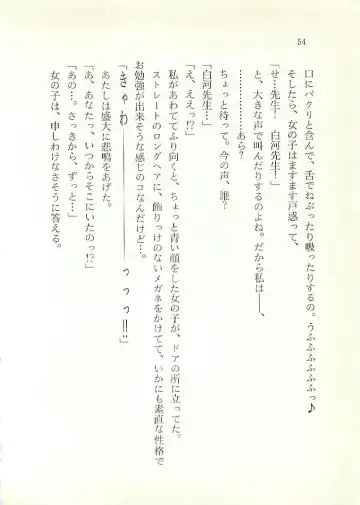 54
口にパクリと含んで、舌でねぶったり吸ったりするの。うふふふふふふっ♪
そしたら、女の子はますます戸惑って、
「せ…先生！　白河先生！」
と、大きな声で叫んだりするのよね。だから私は――、
…………………あら？
ちょっと待って。今の声、誰？
「白河先生…」
「え、ええっ!?」
私があわててふり向くと、ちょっと青い顔をした女の子が、ドアの所に立ってた。
ストレートのロングヘアに、飾りっけのないメガネをかけてて、いかにも素直な性格で
お勉強が出来そうな感じのコなんだけど…。
「きゃーわ―――――っっっ!!!」
あたしは盛大に悲鳴をあげた。
「あ、あなたっ、いつからそこにいたのっ!?」
「あの…。さっきから、ずっと…」
女の子は、申しわけなさそうに答える。